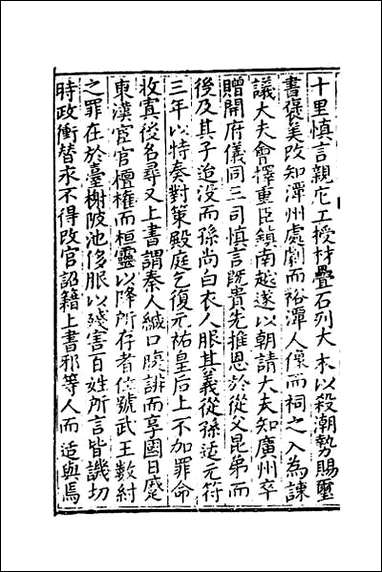 十里慎言親庀工授材疊石列大木以殺潮勢賜璽
書褒美改知潭州處劇而裕潭人像而祠之入為諫
議大夫會擇重臣鎮南越遂以朝請大夫知廣州卒
贈開府儀同三司慎言既貴先推恩於從父昆弟而
後及其子迨没而孫尚白衣人服其義從孫适元符
三年以特奏對策殿庭乞復元祐皇后上不加罪命
收寘後名尋又上書謂秦人緘口腹誹而享國日蹙
東漢宦官檀權而桓靈以降所存者位號武王數紂
之罪在於臺榭陂池侈服以殘害百姓所言皆譏切
時政衝替永不得改官詔籍上書邪等人而适與焉